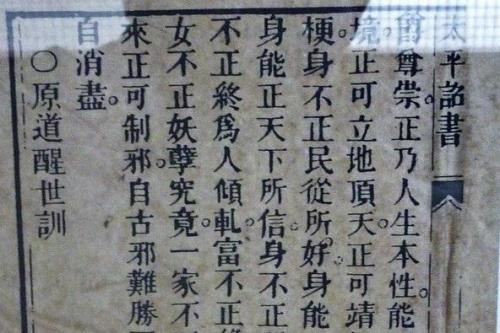 太平詔書
尊崇。正乃人生本性能
境正可立地頂天。正可靖
梗身不正民從所好。身能
身能正天下所信。身不正
不正終爲人傾軋。富不正
女不正妖孽究竟。一家不
來正可制邪。自古邪難勝
自消盡。
〇原道醒世訓